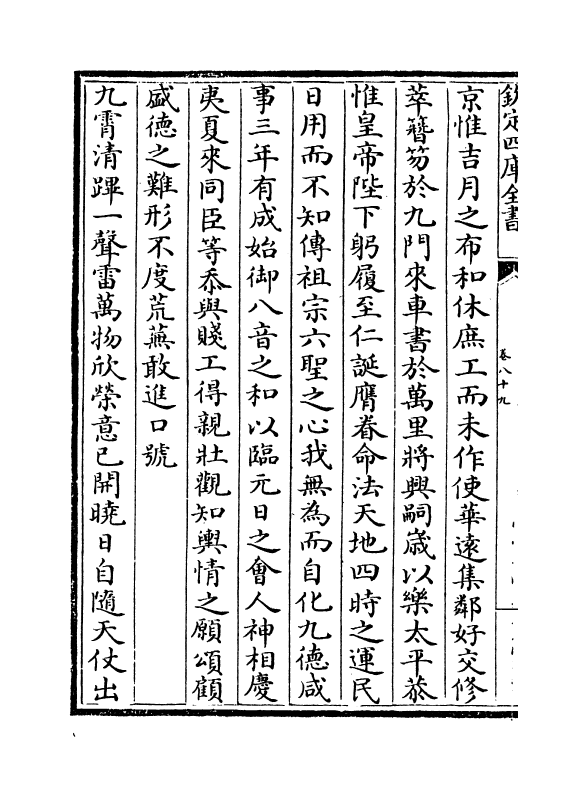 欽定四庫全書
卷八十九
京惟吉月之布和休庶工而未作使華遠集鄰好交修
萃簪笏於九門來車書於萬里將興嗣歲以樂太平恭
惟皇帝陛下躬履至仁誕膺眷命法天地四時之運民
日用而不知傳祖宗六聖之心我無為而自化九德咸
事三年有成始御八音之和以臨元日之會人神相慶
夷夏來同臣等忝與賤工得親壯觀知輿情之願頌顧
盛德之難形不度荒蕪敢進口號
九霄清蹕一聲雷萬物欣榮意已開曉日自隨天仗出